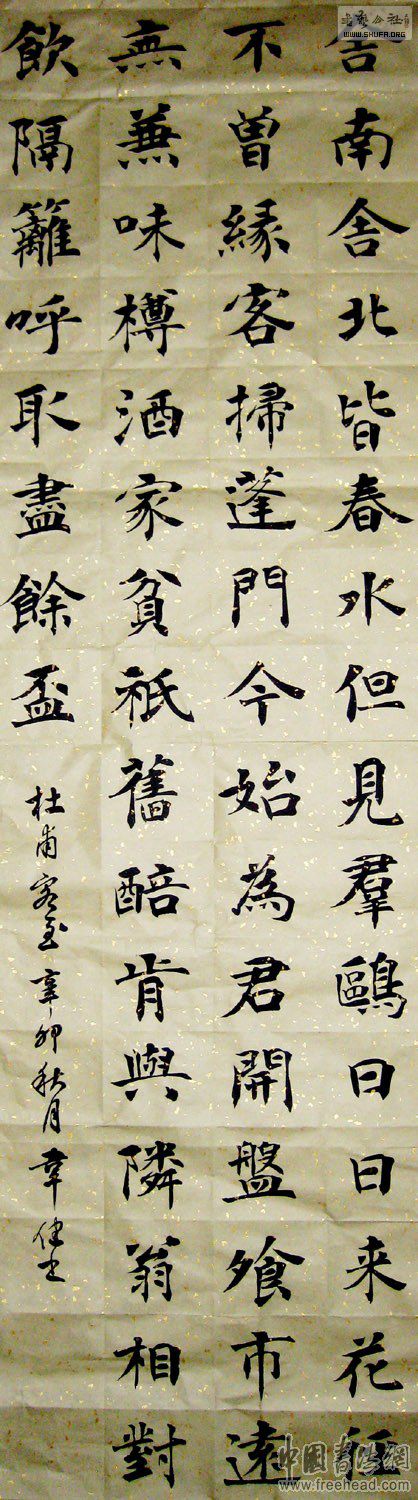 舍南舍北皆春水但見羣鷗日日来花徑
不曾緣客掃蓬門今始為君開盤飧市遠
無蒹味樽酒家貧祇舊醅肯與隣翁相對
飲隔籬呼取盡餘盃
杜甫客至辛卯秋月韋
WWW.SHUFA.ORG
中國書法網
www.freehead.com